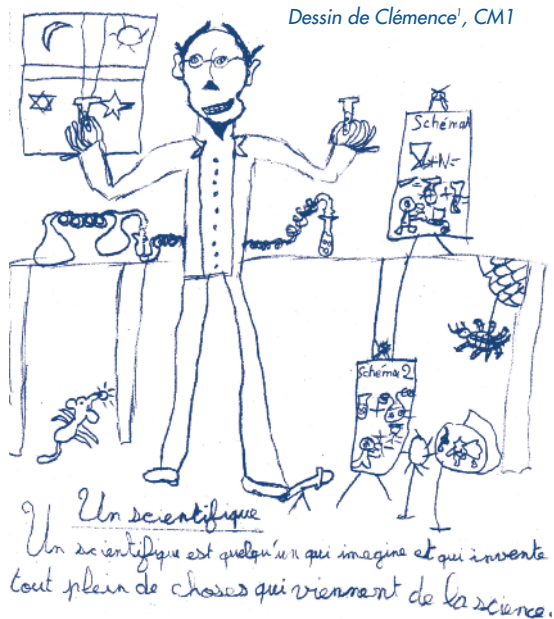 Dessin de Clémence¹, CM1
Schéma1
Schéma 2
Un scientifique
Un scientifique est quelqu'un qui imagine et qui invente
tout plein de choses qui viennent de la science.